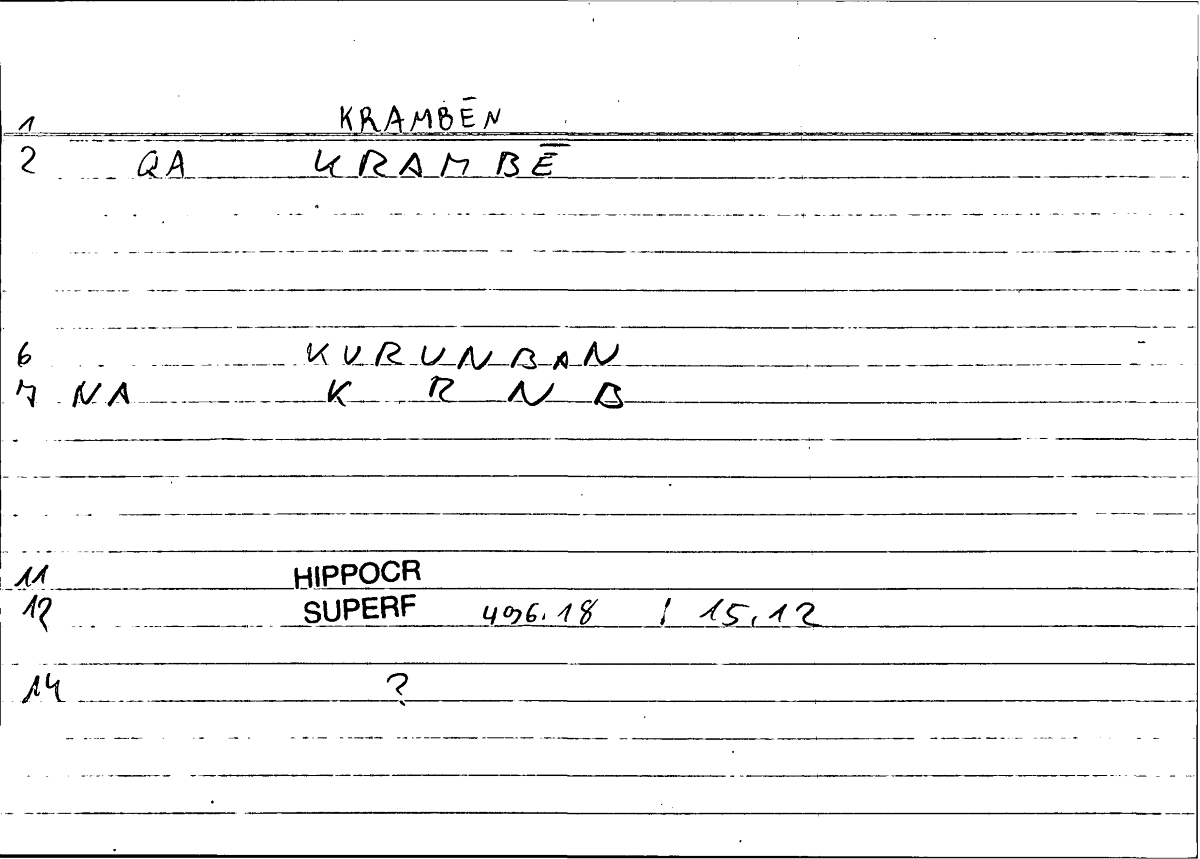 1 KRAMBĒN
2 QA KRAMBĒ
6 KURUNBAN
7 NA K R N B
11 HIPPOCR
12 SUPERF 496.18 / 15.12
14 ?